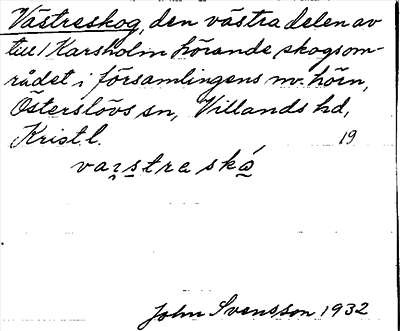 Västreskog, den västra delen av
till Karsholm hörande skogsom-
rådet i församlingens nv. hörn,
Österslövs sn, Villands hd,
Krist.l. 19
va̤ʂtre skå̱
John Svensson 1932